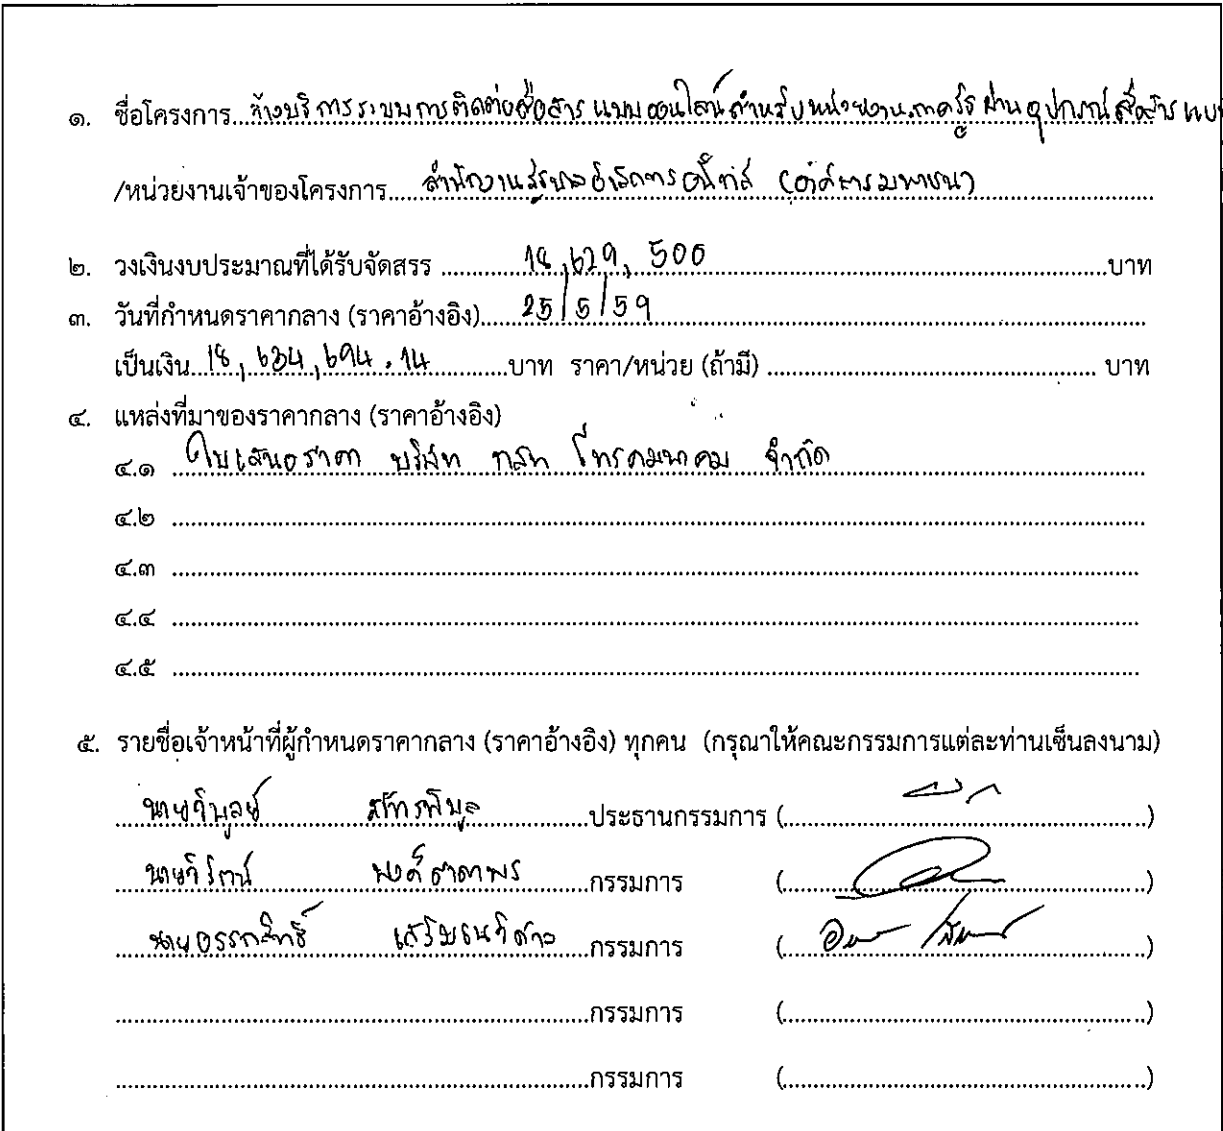 ๑. ชื่อโครงการ...จ้างบริการระบบการติดต่อสื่อสารแบบออนไลน์สำหรับหน่วยงานภาครัฐผ่านอุปกรณ์สื่อสารแบบ
/หน่วยงานเจ้าของโครงการ....สำนักงานรัฐบาลอิเล็กทรอนิกส์ (องค์การมหาชน)
๒. วงเงินงบประมาณที่ได้รับจัดสรร ............18,629,500............บาท
๓. วันที่กำหนดราคากลาง (ราคาอ้างอิง)......25/5/59......
เป็นเงิน..18,634,694.14............บาท ราคา/หน่วย (ถ้ามี) ............ บาท
๔. แหล่งที่มาของราคากลาง (ราคาอ้างอิง)
๔.๑ ใบเสนอราคา บริษัท กสท โทรคมนาคม จำกัด
๔.๒ ............
๔.๓ ............
๔.๔ ............
๔.๕ ............
๕. รายชื่อเจ้าหน้าที่ผู้กำหนดราคากลาง (ราคาอ้างอิง) ทุกคน (กรุณาให้คณะกรรมการแต่ละท่านเซ็นลงนาม)
นายวิบูลย์ ภัทรพิบูล ประธานกรรมการ (............)
นายวิรัตน์ พงศ์ดาดาพร กรรมการ (............)
นายอรรถสิทธิ์ กรรมการ (............)
............กรรมการ (............)
............กรรมการ (............)